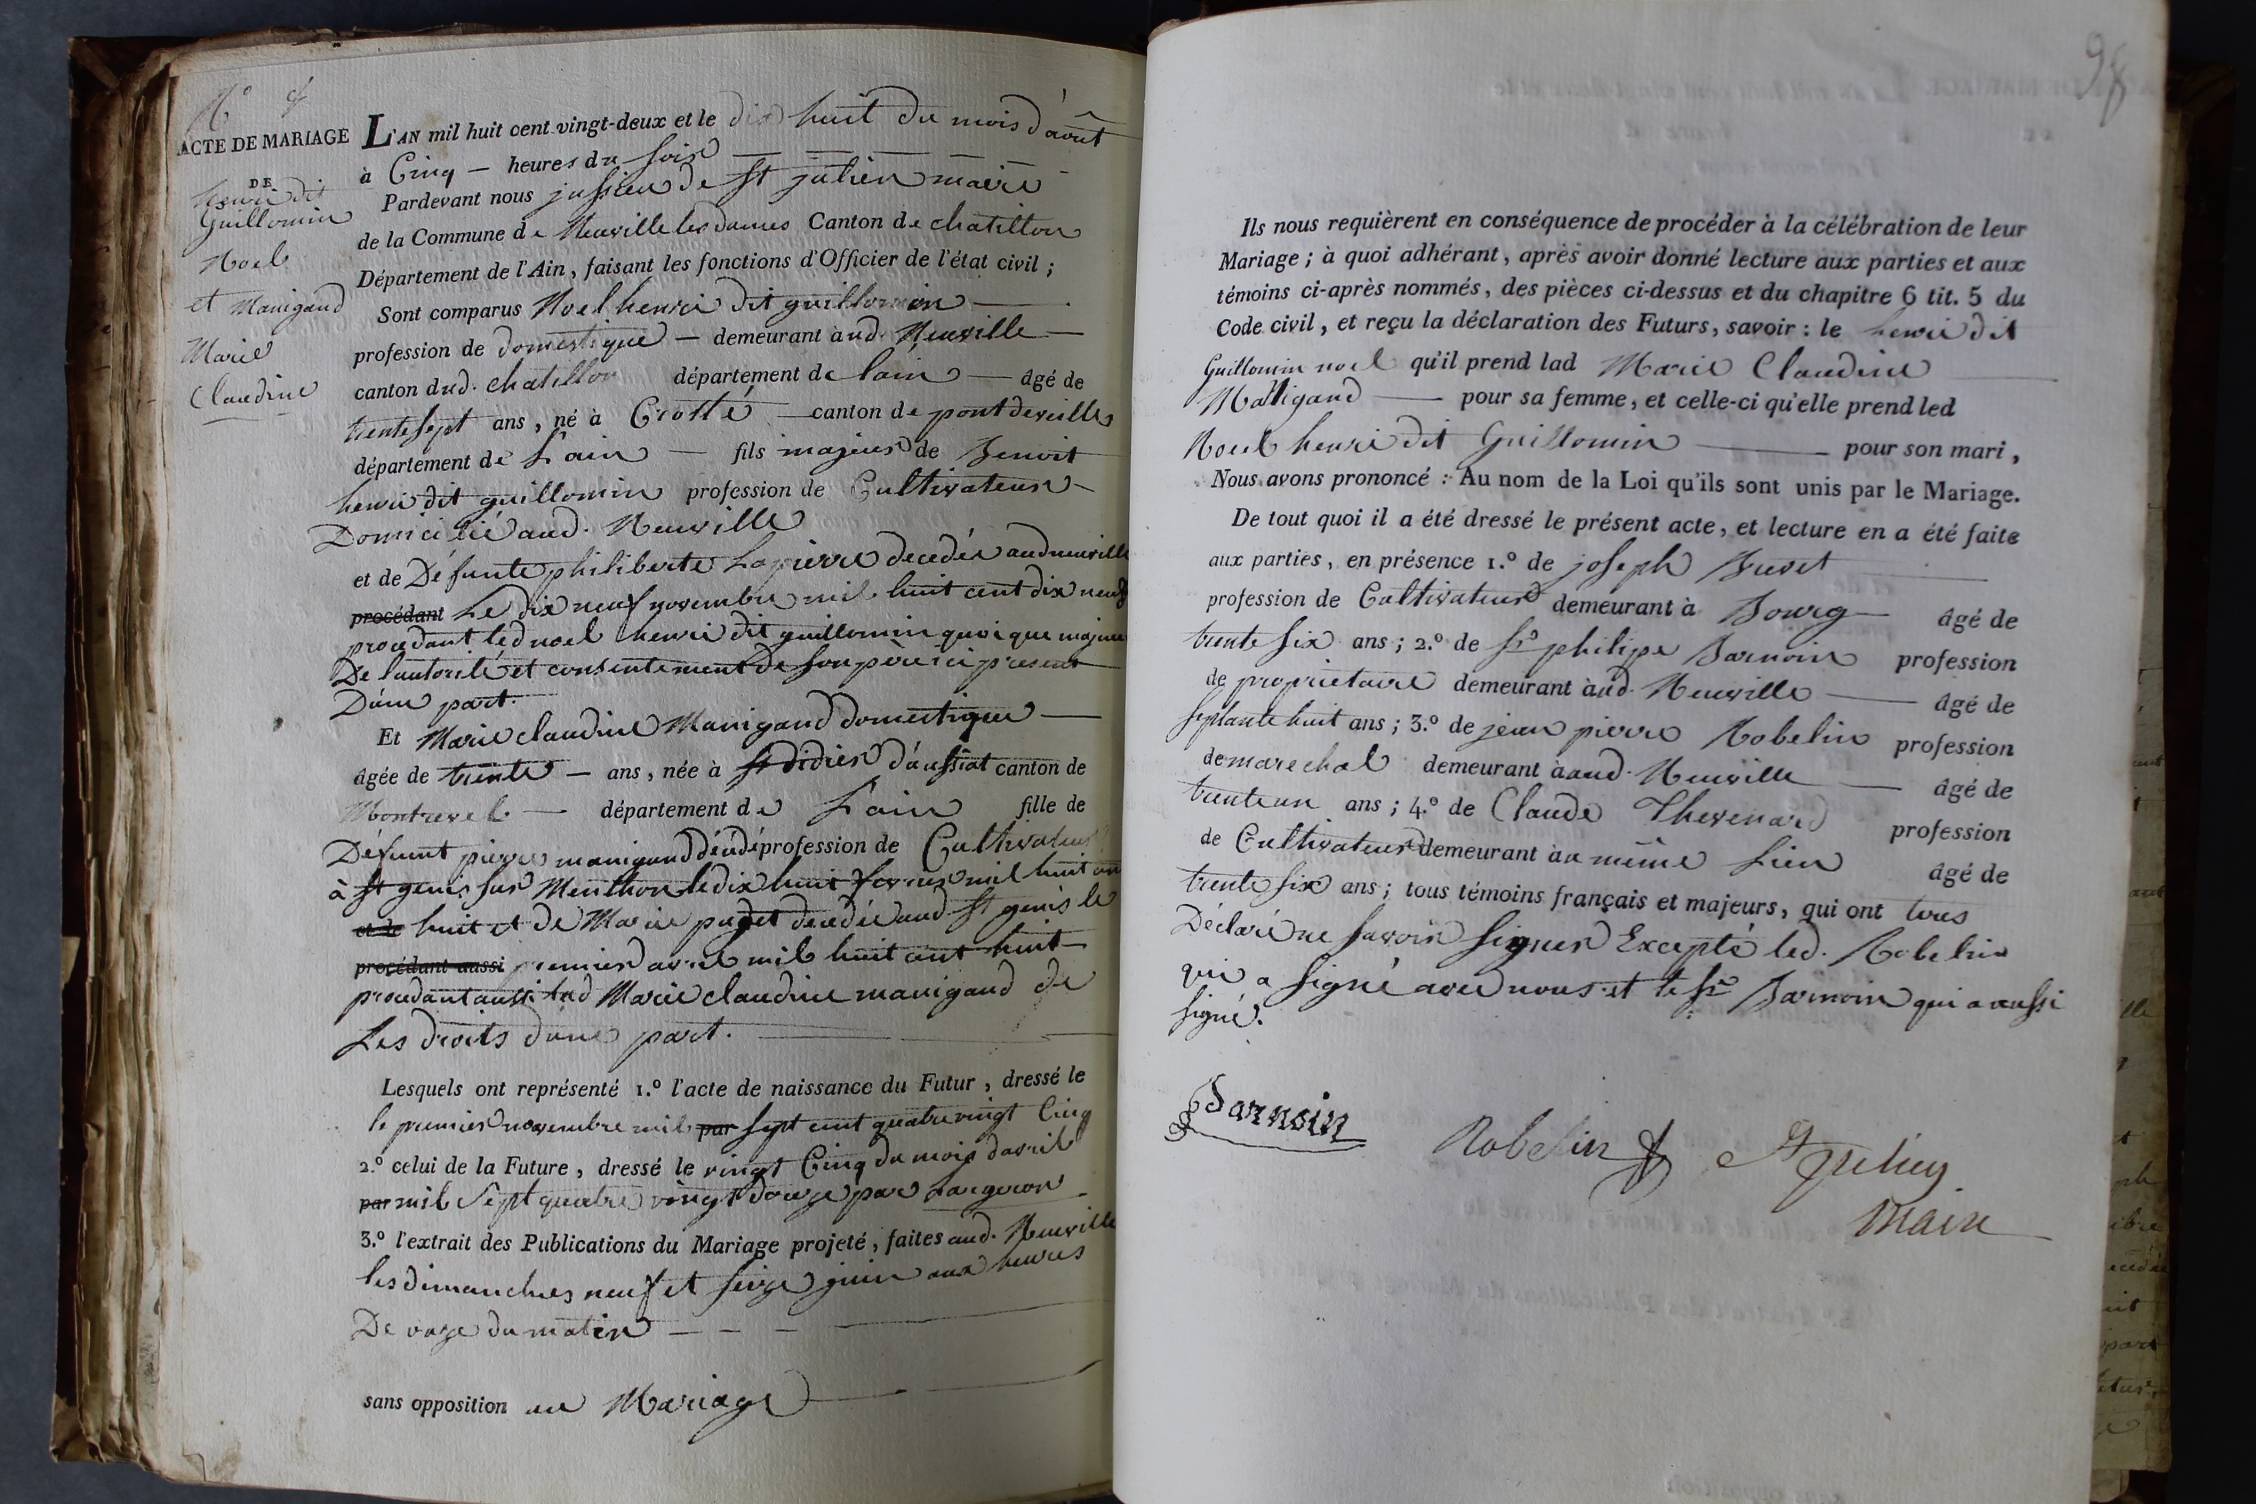 N° 4
ACTE DE MARIAGE
DE
henri dit
Guillomin
Noel
et Manigand
Marie
Claudine
L'AN mil huit cent vingt-deux et le dix huit du mois d'août
à Cinq — heures du soir
Pardevant nous jussieu de St julien maire
de la Commune de Neuville les dames Canton de chatillon
Département de l'Ain, faisant les fonctions d'Officier de l'état civil ;
Sont comparus Noel henri dit guillomin
profession de domestique — demeurant aud. Neuville
canton dud. chatillon département de lain — âgé de
trente sept ans, né à Crotté — canton de pont deveille
département de Lain — fils majeur de Benoit
henri dit guillomin profession de Cultivateur
Domicilié aud. Neuville
et de Défunte philiberte Lapierre decedée aud neuville
procédant Le dix neuf novembre mil huit cent dix neuf
procedant led noel henri dit guillomin quoique majeur
De l'autorité et consentement de son père ici present
D'une part.
Et Marie claudine Manigand domestique
âgée de trente — ans, née à St didier d'aussiat canton de
Montrevel — département de Lain fille de
Défunt pierre manigand décédé profession de Cultivateur
à St genis sur Menthon le dix huit fevrier mil huit cent
et de huit et de Marie puget decedée aud St genis le
procédant aussi premier avril mil huit cent huit
procedant aussi lad Marie claudine manigand de
Les droits d'une part.
Lesquels ont représenté 1.° l'acte de naissance du Futur, dressé le
le premier novembre mil par sept cent quatre vingt Cinq
2.° celui de la Future, dressé le vingt Cinq du mois davril
par mil sept quatre vingt douze par Largeron
3.° l'extrait des Publications du Mariage projeté, faites aud. Neuville
les dimanches neuf et seize juin aux heures
De onze du matin
sans opposition au Mariage
98
Ils nous requièrent en conséquence de procéder à la célébration de leur
Mariage ; à quoi adhérant, après avoir donné lecture aux parties et aux
témoins ci-après nommés, des pièces ci-dessus et du chapitre 6 tit. 5 du
Code civil, et reçu la déclaration des Futurs, savoir : le henri dit
Guillomin noel qu'il prend lad Marie Claudine
Manigand — pour sa femme, et celle-ci qu'elle prend led
Noel henri dit Guillomin — pour son mari,
Nous avons prononcé : Au nom de la Loi qu'ils sont unis par le Mariage.
De tout quoi il a été dressé le présent acte, et lecture en a été faite
aux parties, en présence 1.° de joseph
profession de Cultivateur demeurant à Bourg âgé de
trente six ans ; 2.° de Sr philipe Darnoin profession
de propriétaire demeurant aud. Neuville — âgé de
septante huit ans ; 3.° de jean pierre Robelin profession
de marechal demeurant à aud. Neuville — âgé de
trente un ans ; 4.° de Claude Thevenard profession
de Cultivateur demeurant au même Lieu âgé de
trente six ans ; tous témoins français et majeurs, qui ont tous
Déclaré ne savoir signer Excepté led. Robelin
qui a signé avec nous et le Sr Darnoin qui a aussi
signé.
Darnoin
Robelin
St julien
Maire